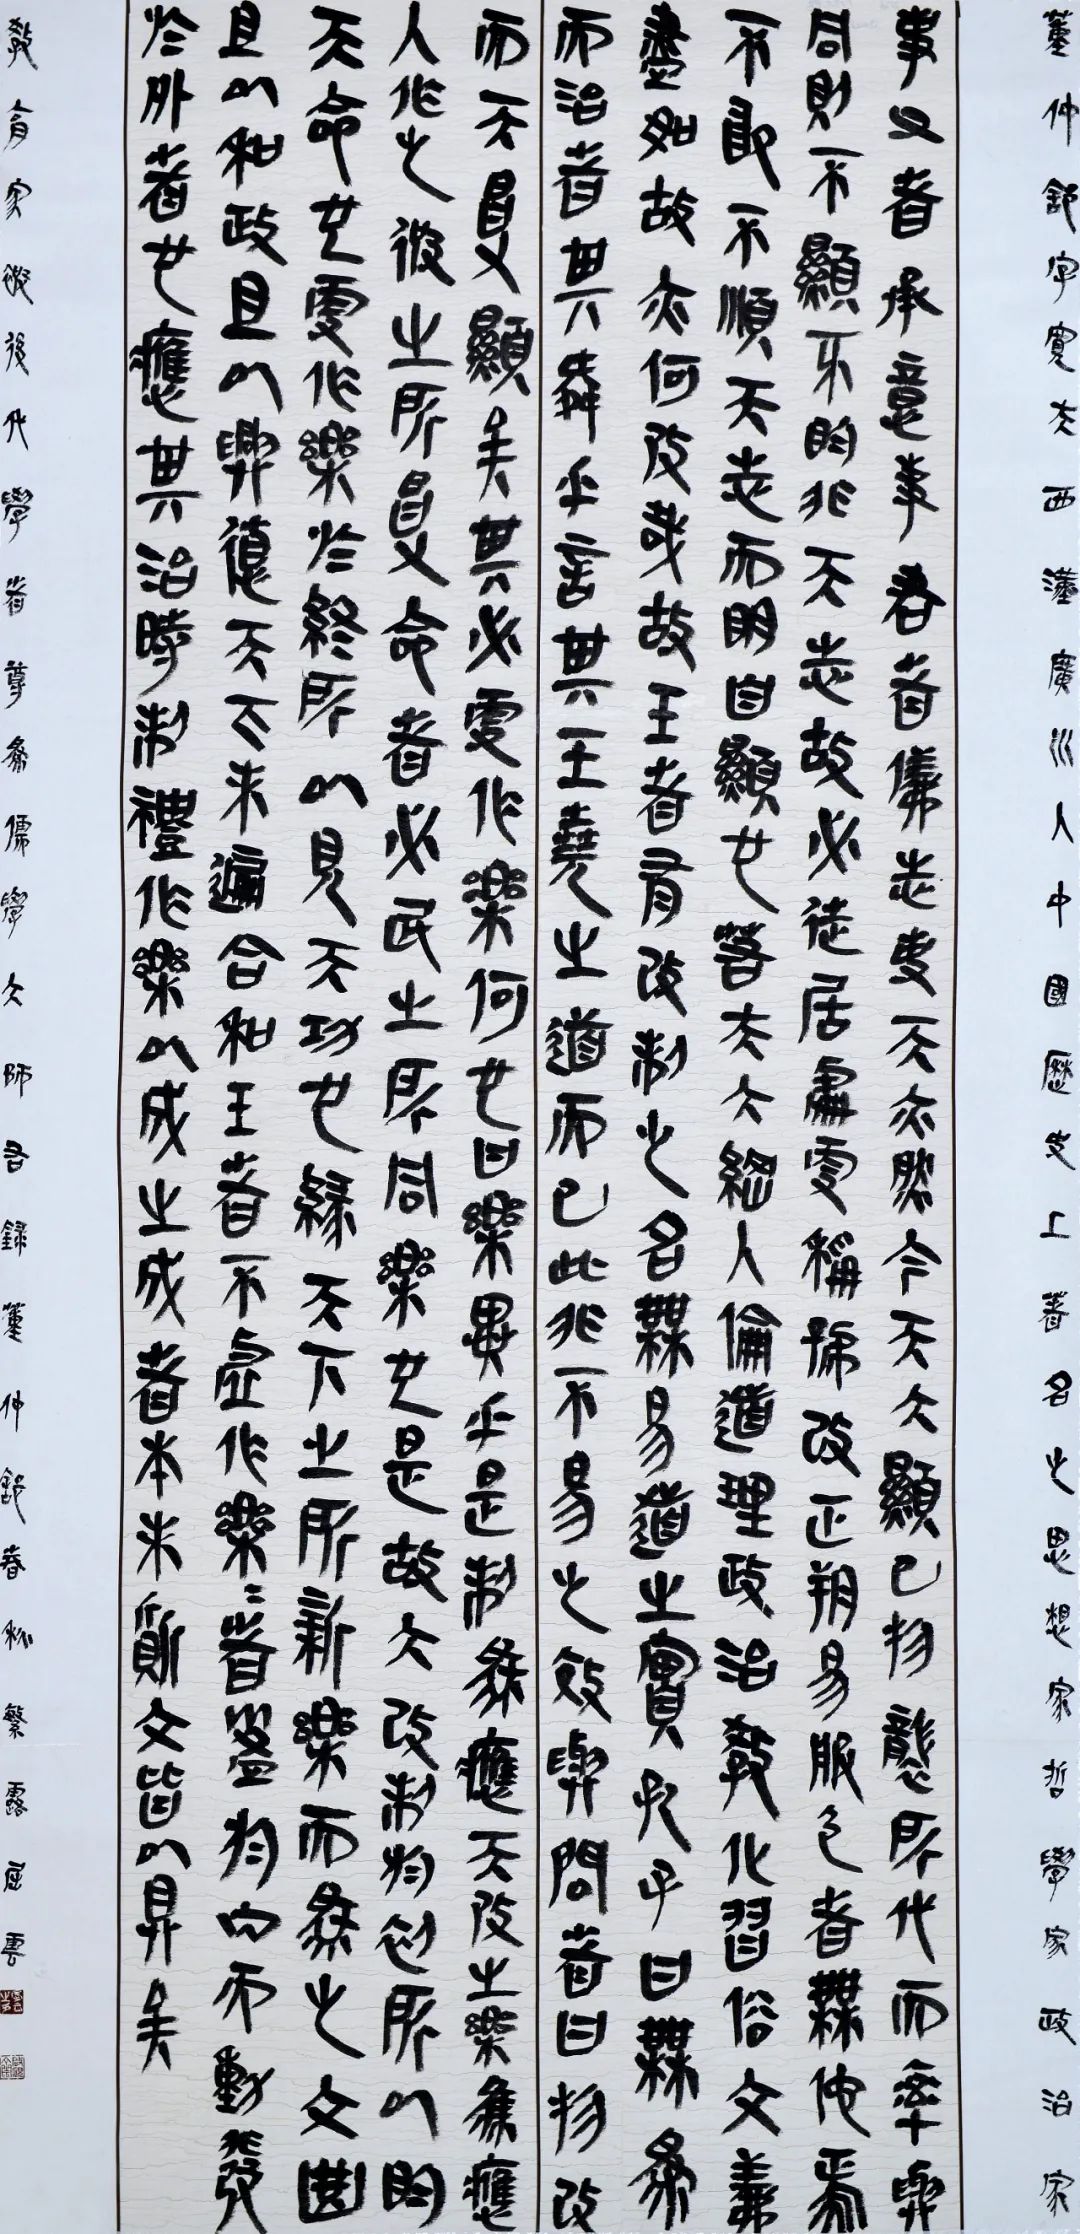 董仲舒字寬夫西漢廣川人中國歷史上著名之思想家哲學家政治家
事父者承意事君者儀志事天亦然今天大顯已物襲所代而率與
同則不顯不明非天志故必徙居處更稱號改正朔易服色者無他焉
不敢不順天志而明自顯也若夫大綱人倫道理政治教化習俗文義
盡如故亦何改哉故王者有改制之名無易道之實孔子曰無為
而治者其舜乎言其主堯之道而已此非不易之效與問者曰物改
而天受顯矣其必更作樂何也曰樂異乎是制為應天改之樂為應
人作之彼之所受命者必民之所同樂也是故大改制於初所以明
天命也更作樂於終所以見天功也緣天下之所新樂而為之文曲
且以和政且以興德天下未遍合和王者不虛作樂〻者盈於內而動發
於外者也應其治時制禮作樂以成之成者本末質文皆以具矣
教育家被後代學者尊為儒學大師右錄董仲舒春秋繁露屈雲